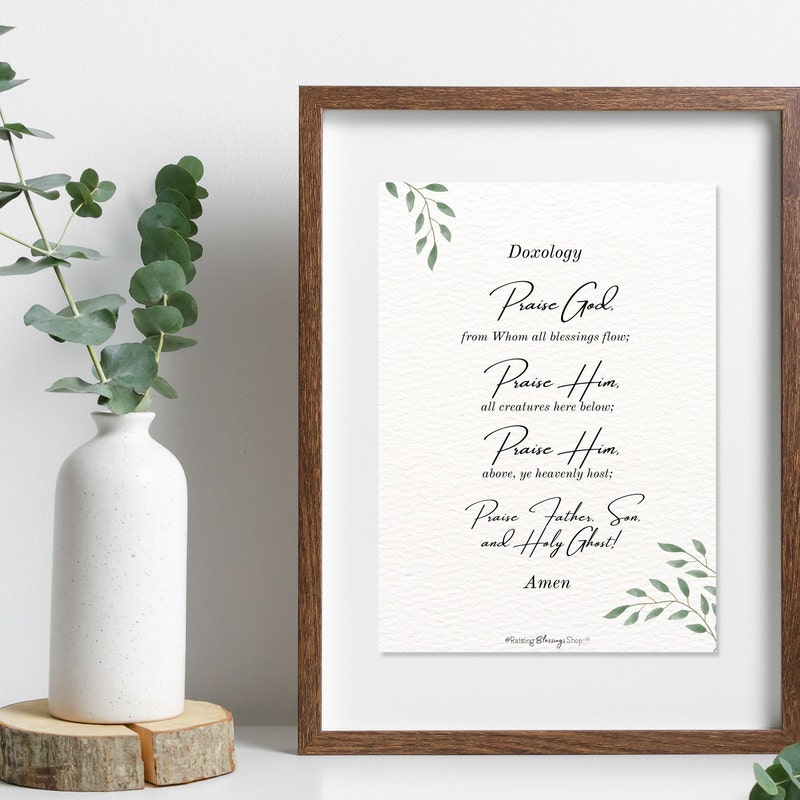 Doxology
Praise God,
from Whom all blessings flow;
Praise Him,
all creatures here below;
Praise Him,
above, ye heavenly host;
Praise Father, Son,
and Holy Ghost!
Amen
@Raising Blessings Shop